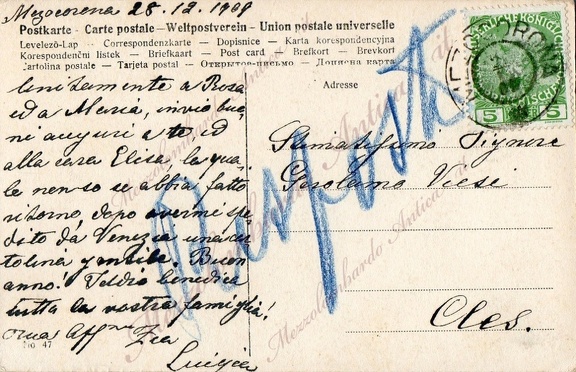 Mezocorona 28.12.1908
Postkarte - Carte postale - Weltpostverein - Union postale universelle
Levelezö-Lap - Correspondenzkarte - Dopisnice - Karta korespondencyjna
Korespondenční listek - Briefkaart - Post card - Brefkort - Brevkort
Cartolina postale - Tarjeta postal - Открытое письмо - Дописна карта
Adresse
Unitamente a Rosa
ed a Maria, invio buo
ni auguri a te ed
alla cara Elisa, la qua
le non so se abbia fatto
ritorno, dopo avermi spe
dito da Venezia una car
tolina Buon
anno! Iddio benedica
tutta la vostra famiglia!
aff Zia
Luigia
No 47
Signore
Gerolamo
Cles.
5 5
Mezzolombardo Antica